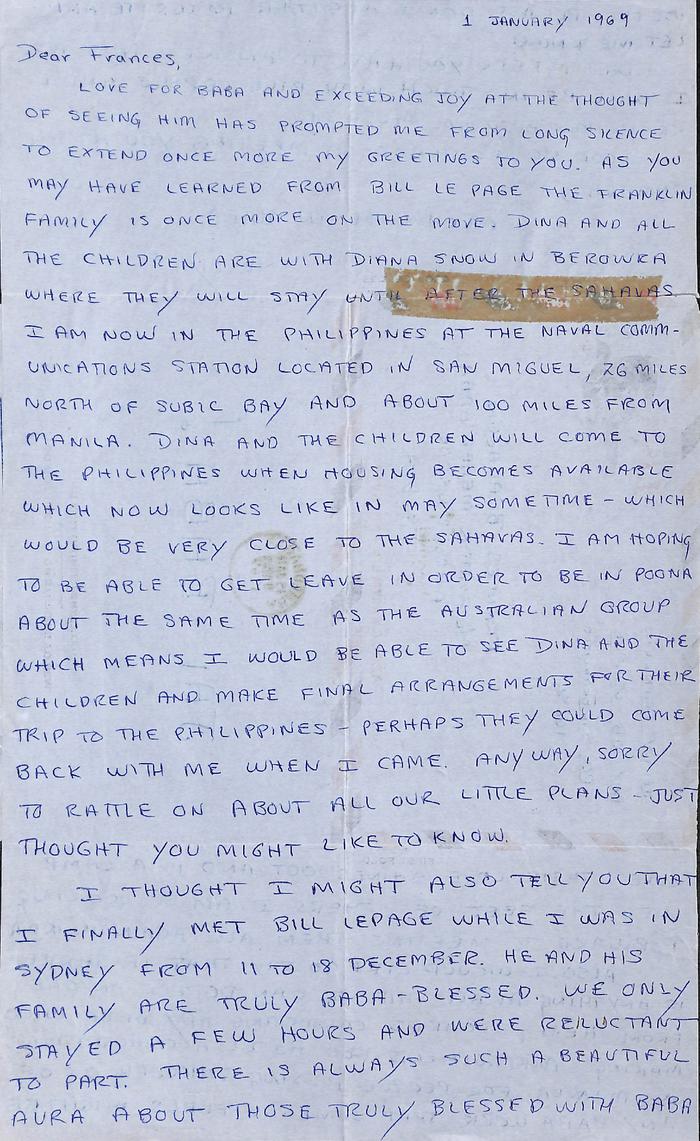 1 JANUARY 1969
Dear Frances,
LOVE FOR BABA AND EXCEEDING JOY AT THE THOUGHT
OF SEEING HIM HAS PROMPTED ME FROM LONG SILENCE
TO EXTEND ONCE MORE MY GREETINGS TO YOU. AS YOU
MAY HAVE LEARNED FROM BILL LE PAGE THE FRANKLIN
FAMILY IS ONCE MORE ON THE MOVE. DINA AND ALL
THE CHILDREN ARE WITH DIANA SNOW IN BEROWRA
WHERE THEY WILL STAY UNTIL AFTER THE SAHAVAS.
I AM NOW IN THE PHILIPPINES AT THE NAVAL COMM-
UNICATIONS STATION LOCATED IN SAN MIGUEL, 26 MILES
NORTH OF SUBIC BAY AND ABOUT 100 MILES FROM
MANILA. DINA AND THE CHILDREN WILL COME TO
THE PHILIPPINES WHEN HOUSING BECOMES AVAILABLE
WHICH NOW LOOKS LIKE IN MAY SOMETIME - WHICH
WOULD BE VERY CLOSE TO THE SAHAVAS. I AM HOPING
TO BE ABLE TO GET LEAVE IN ORDER TO BE IN POONA
ABOUT THE SAME TIME AS THE AUSTRALIAN GROUP
WHICH MEANS I WOULD BE ABLE TO SEE DINA AND THE
CHILDREN AND MAKE FINAL ARRANGEMENTS FOR THEIR
TRIP TO THE PHILIPPINES - PERHAPS THEY COULD COME
BACK WITH ME WHEN I CAME. ANYWAY, SORRY
TO RATTLE ON ABOUT ALL OUR LITTLE PLANS - JUST
THOUGHT YOU MIGHT LIKE TO KNOW.
I THOUGHT I MIGHT ALSO TELL YOU THAT
I FINALLY MET BILL LEPAGE WHILE I WAS IN
SYDNEY FROM 11 TO 18 DECEMBER. HE AND HIS
FAMILY ARE TRULY BABA-BLESSED. WE ONLY
STAYED A FEW HOURS AND WERE RELUCTANT
TO PART. THERE IS ALWAYS SUCH A BEAUTIFUL
AURA ABOUT THOSE TRULY BLESSED WITH BABA